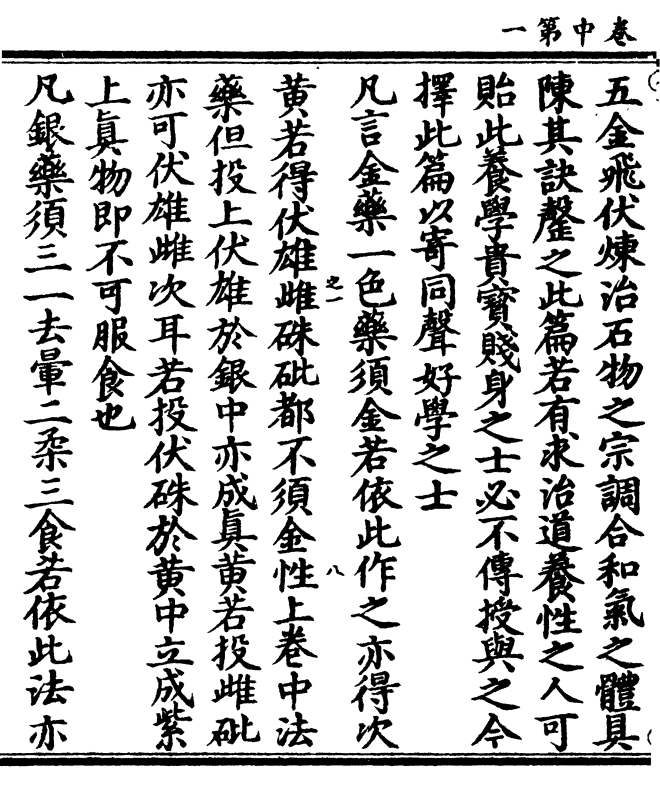 卷中第一
五金飛伏煉治石物之宗調合和氣之體具
陳其訣罄之此篇若有求治道養性之人可
貽此養學貴寳賤身之士必不傳授與之今
擇此篇以寄同聲好學之士
凡言金藥一色藥須金若依此作之亦得次
之一
八
黄若得伏雄雌硃砒都不須金性上卷中法
藥但投上伏雄於銀中亦成眞黄若投雌砒
亦可伏雄雌次耳若投伏硃於黄中立成紫
上眞物即不可服食也
凡銀藥須三一去暈二柔三食若依此法亦